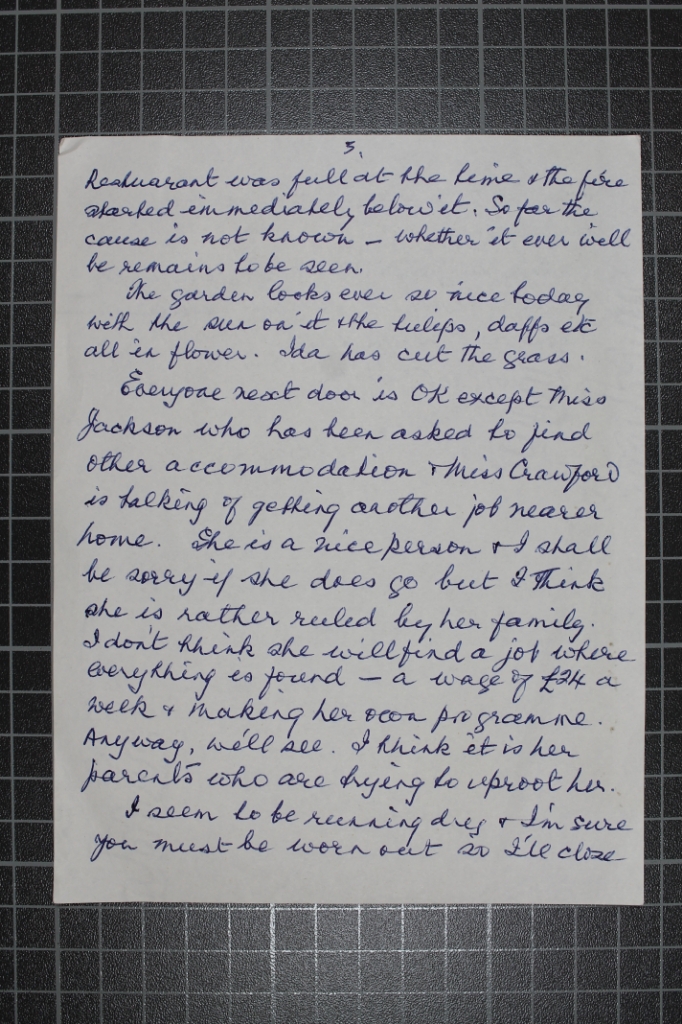 3.
Restuarant was full at the time & the fire
started immediately below it. So far the
cause is not known – whether it ever will
be remains to be seen.
The garden looks ever so nice today
with the sun on it & the tulips, daffs etc
all in flower. Ida has cut the grass.
Everyone next door is OK except Miss
Jackson who has been asked to find
other accommodation & Miss Crawford
is talking of getting another job nearer
home. She is a nice person & I shall
be sorry if she does go but I think
she is rather ruled by her family.
I don't think she will find a job where
everything is found – a wage of £24 a
week & making her own programme.
Anyway, we'll see. I think it is her
parents who are trying to uproot her.
I seem to be running dry & I'm sure
you must be worn out so I'll close